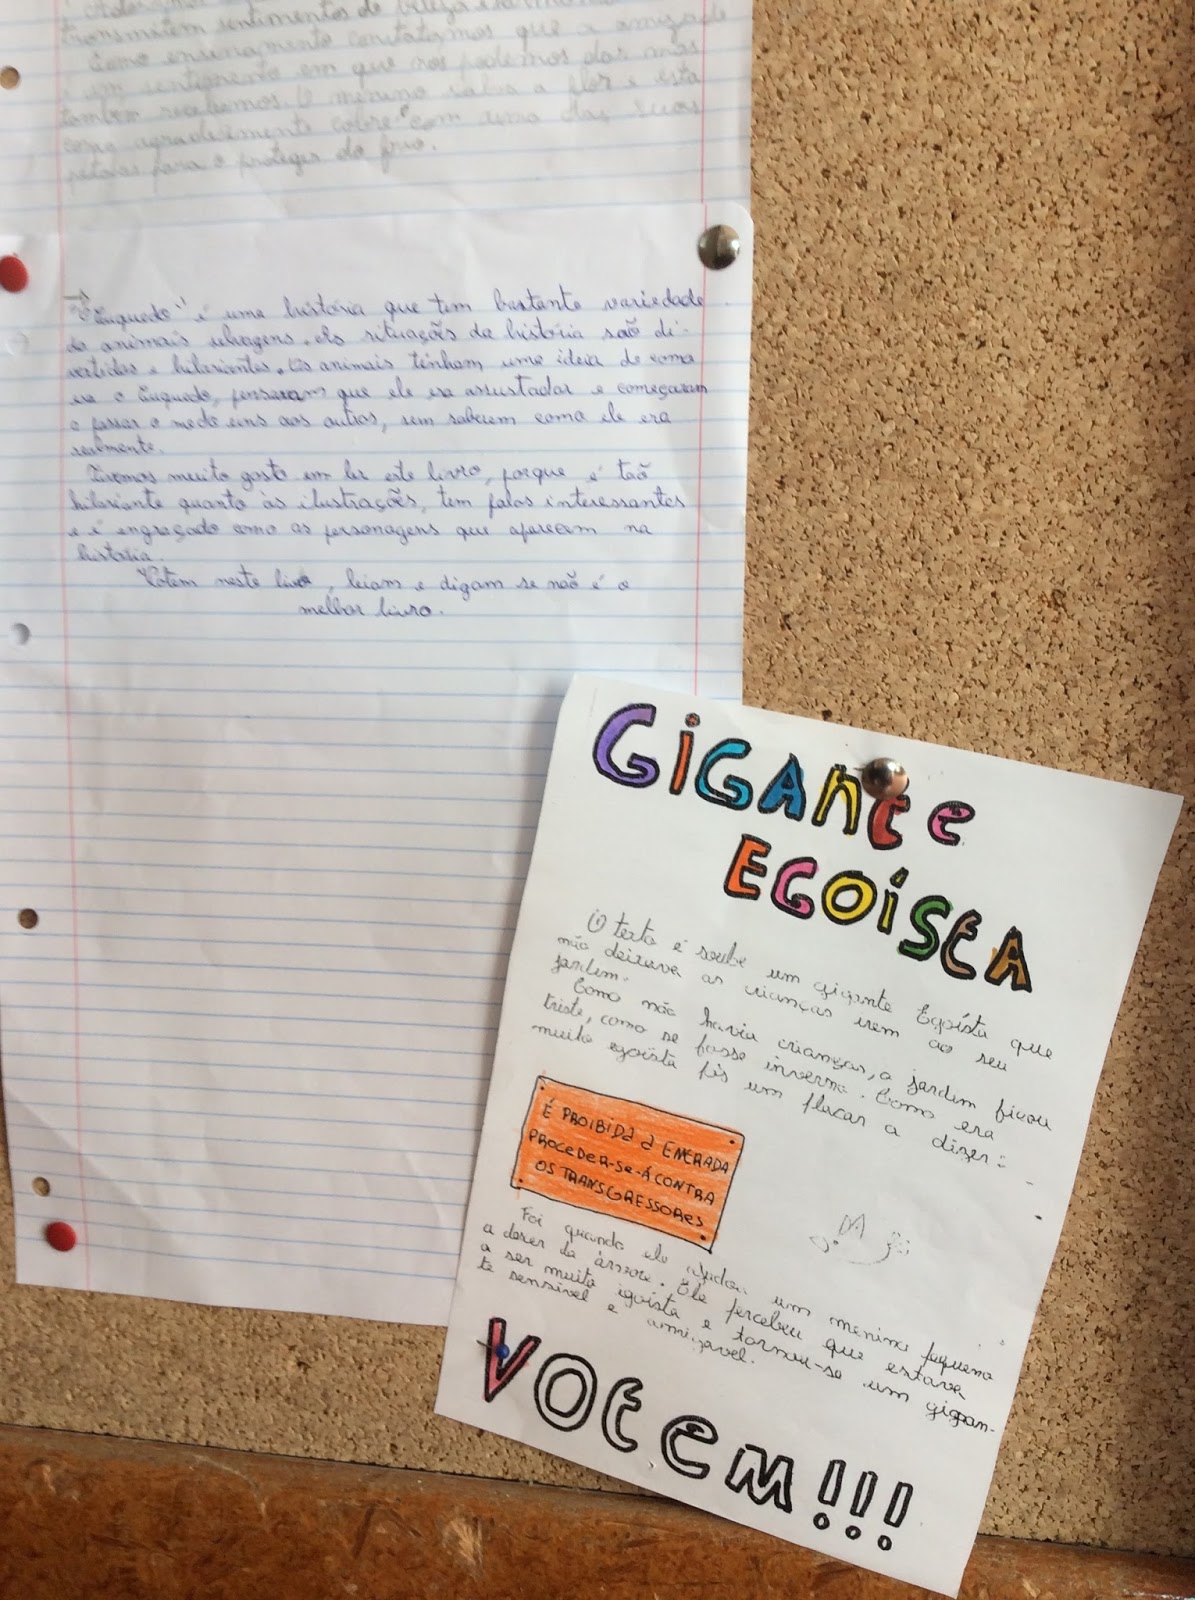 transmitem sentimentos de beleza
Como ensinamento constatamos que a amizade
é um sentimento em que nós podemos dar mas
também recebemos. O menino salva a flor e esta
como agradecimento cobre-o com uma das suas
pétalas para o proteger do frio.
"O Tuquedo" é uma história que tem bastante variedade
de animais selvagens. As situações da história são di-
vertidas e hilariantes. Os animais tinham uma ideia de como
era o Tuquedo, pensaram que ele era assustador e começaram
a passar o medo uns aos outros, sem saberem como ele era
realmente.
Tivemos muito gosto em ler este livro, porque é tão
hilariante quanto às ilustrações, tem falas interessantes
e é engraçado como as personagens que aparecem na
história.
Votem neste livro, leiam e digam se não é o
melhor livro.
GIGANTE
EGOÍSTA
O texto é soube um gigante Egoísta que
não deixava as crianças irem ao seu
jardim.
Como não havia crianças, o jardim ficou
triste, como se fosse inverno. Como era
muito egoísta fês um placar a dizer:
É PROIBIDA A ENTRADA
PROCEDER-SE-Á CONTRA
OS TRANSGRESSORES
Foi quando ele ajudou um menino pequeno
a descer da árvore. Ele percebeu que estava
a ser muito egoísta e tornou-se um gigan-
te sensível e amigável.
VOTEM!!!